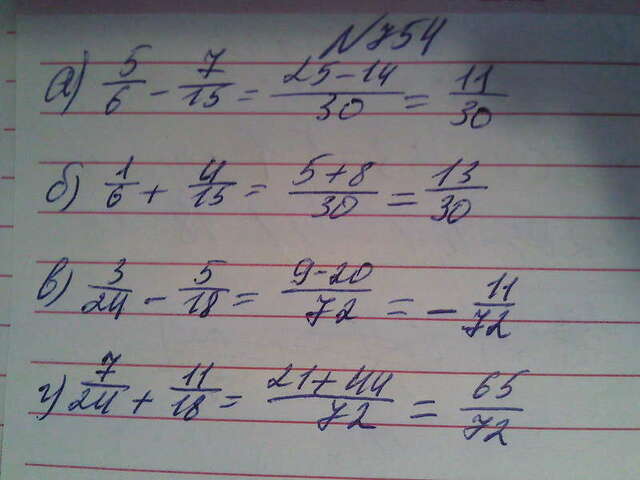 N754
а) 5/6 - 7/15 = 25-14/30 = 11/30
б) 1/6 + 4/15 = 5+8/30 = 13/30
в) 3/24 - 5/18 = 9-20/72 = - 11/72
г) 7/24 + 11/18 = 21+44/72 = 65/72